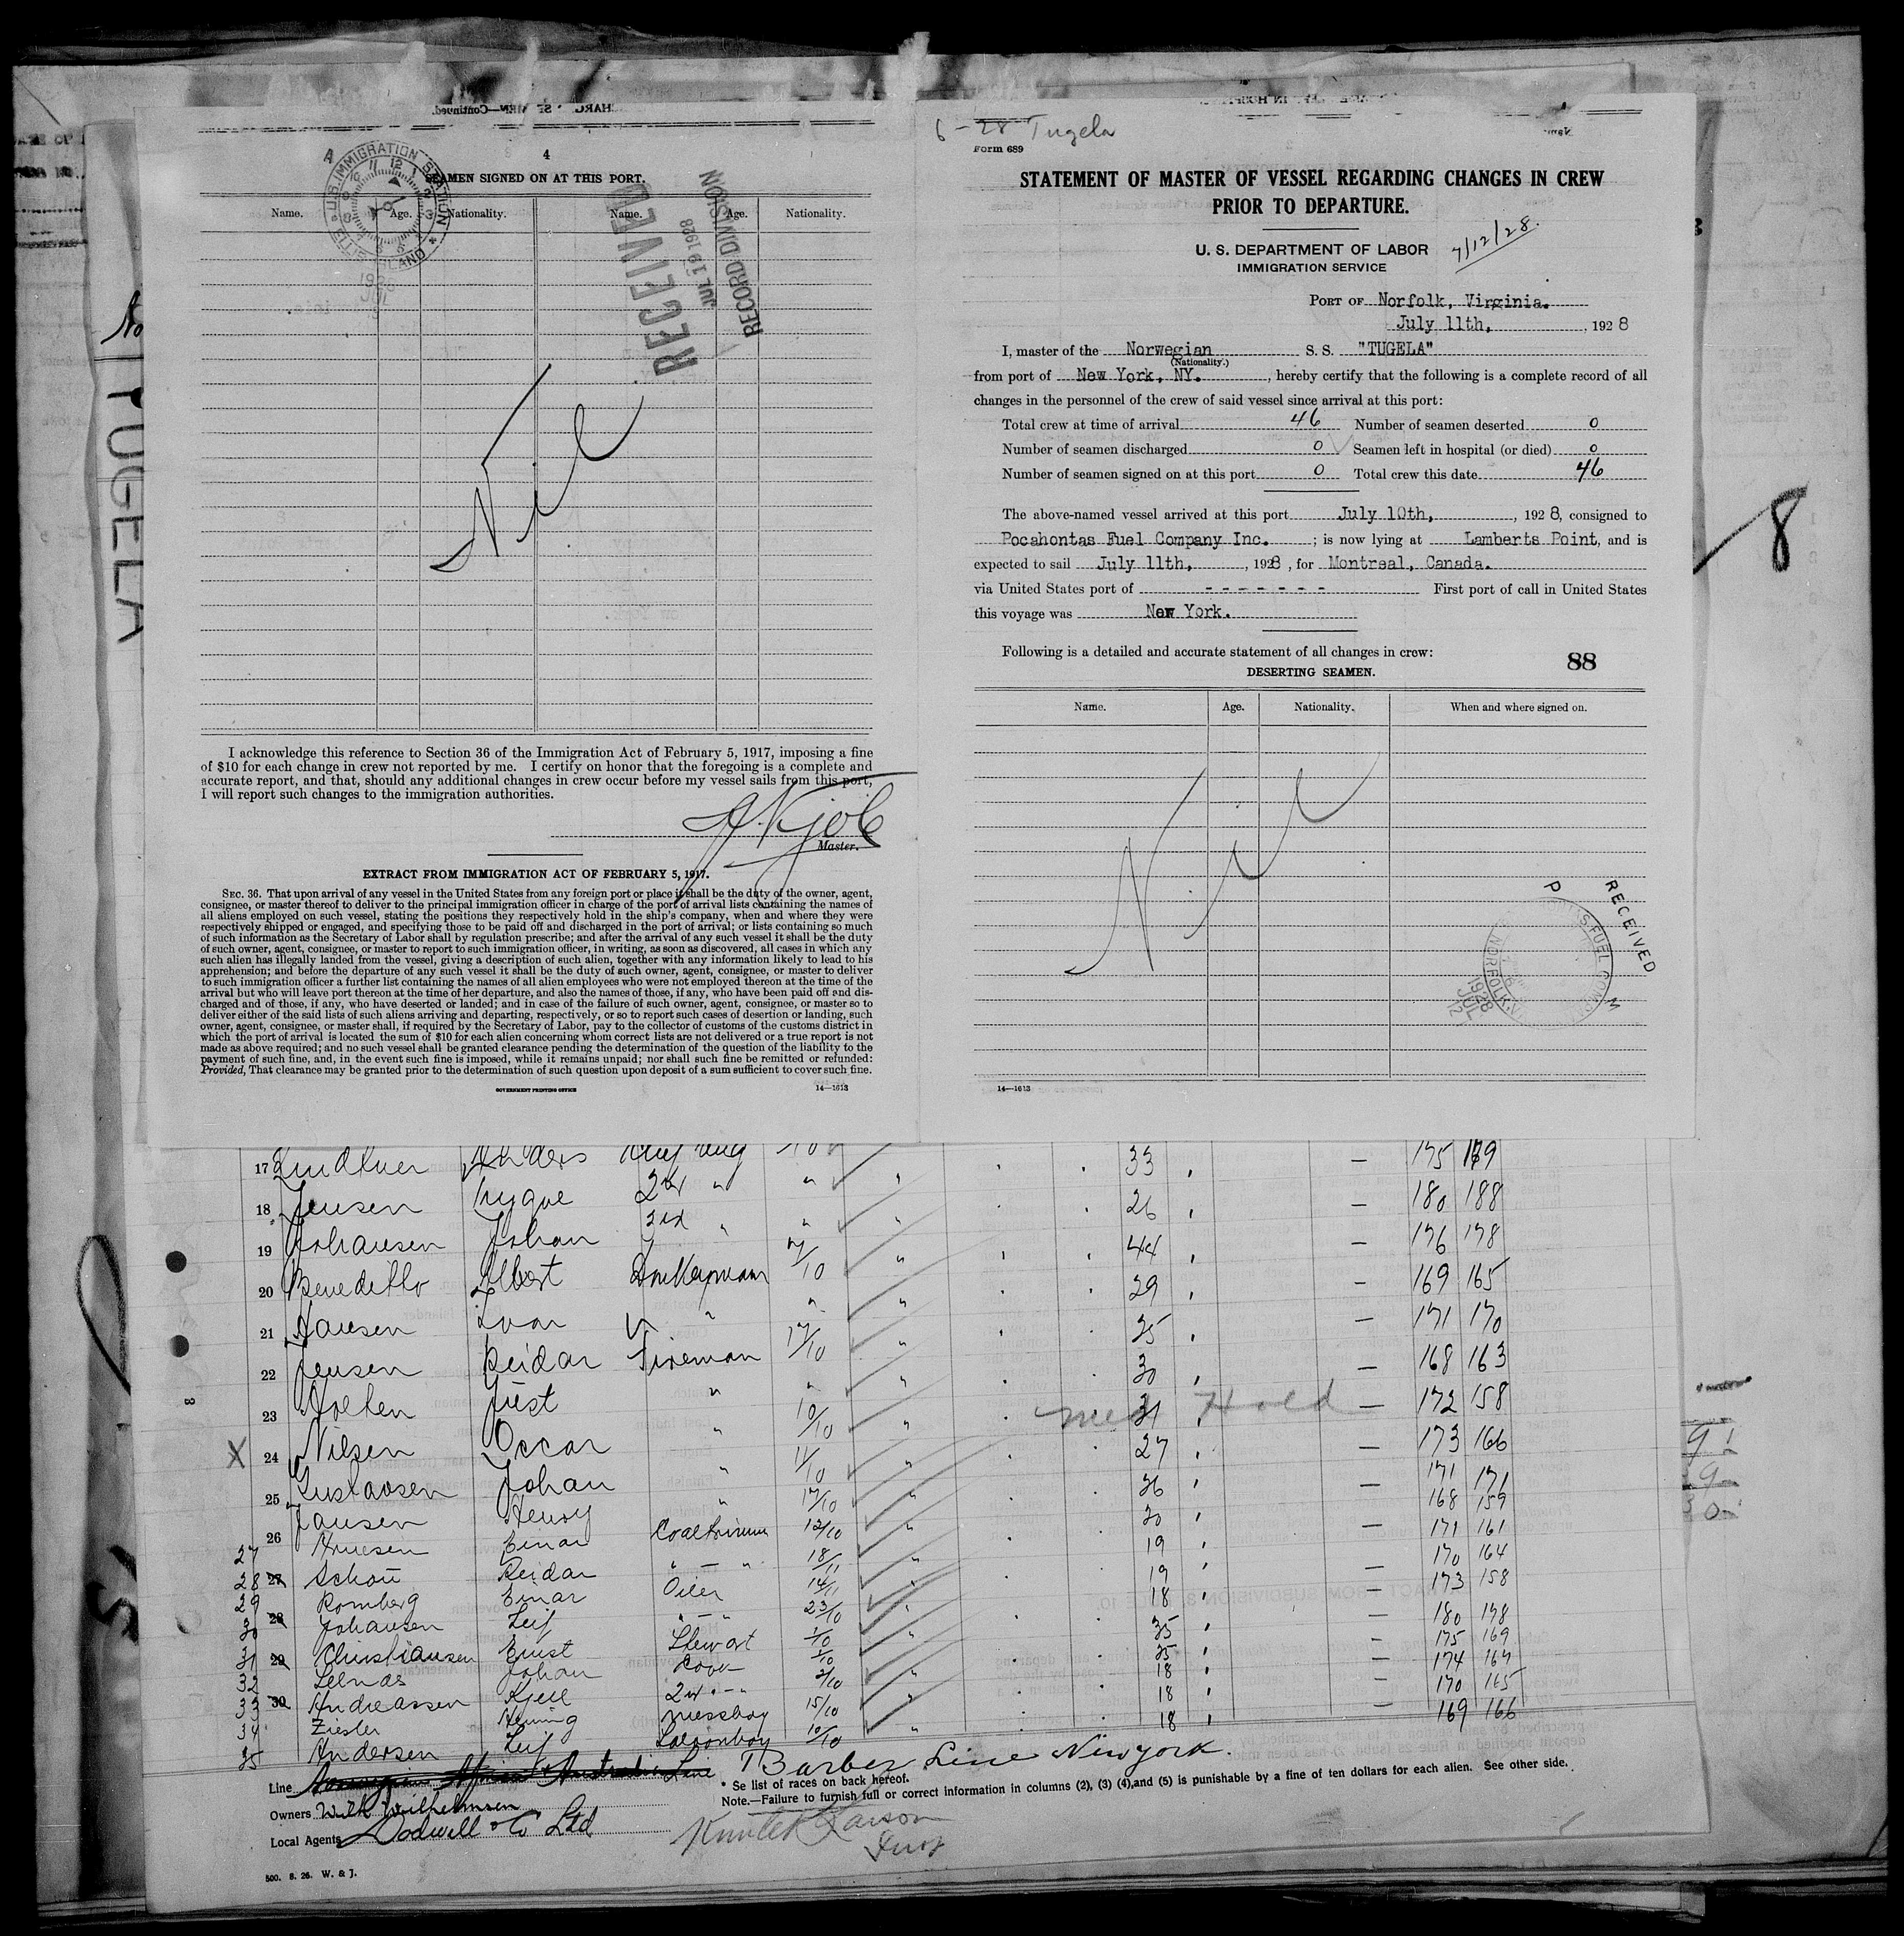 4
SEAMEN SIGNED ON AT THIS PORT.
Name. Age. Nationality. Name. Age. Nationality.
U.S. IMMIGRATION STATION
RECEIVED
JUL 19 1928
RECORD DIVISION
Nil
I acknowledge this reference to Section 36 of the Immigration Act of February 5, 1917, imposing a fine
of $10 for each change in crew not reported by me. I certify on honor that the foregoing is a complete and
accurate report, and that, should any additional changes in crew occur before my vessel sails from this port,
I will report such changes to the immigration authorities.
Master.
EXTRACT FROM IMMIGRATION ACT OF FEBRUARY 5, 1917.
SEC. 36. That upon arrival of any vessel in the United States from any foreign port or place it shall be the duty of the owner, agent,
consignee, or master thereof to deliver to the principal immigration officer in charge of the port of arrival lists containing the names of
all aliens employed on such vessel, stating the positions they respectively hold in the ship's company, when and where they were
respectively shipped or engaged, and specifying those to be paid off and discharged in the port of arrival; or lists containing so much
of such information as the Secretary of Labor shall by regulation prescribe; and after the arrival of any such vessel it shall be the duty
of such owner, agent, consignee, or master to report to such immigration officer, in writing, as soon as discovered, all cases in which any
such alien has illegally landed from the vessel, giving a description of such alien, together with any information likely to lead to his
apprehension; and before the departure of any such vessel it shall be the duty of such owner, agent, consignee, or master to deliver
to such immigration officer a further list containing the names of all alien employees who were not employed thereon at the time of the
arrival but who will leave port thereon at the time of her departure, and also the names of those, if any, who have been paid off and dis-
charged and of those, if any, who have deserted or landed; and in case of the failure of such owner, agent, consignee, or master so to
deliver either of the said lists of such aliens arriving and departing, respectively, or so to report such cases of desertion or landing, such
owner, agent, consignee, or master shall, if required by the Secretary of Labor, pay to the collector of customs of the customs district in
which the port of arrival is located the sum of $10 for each alien concerning whom correct lists are not delivered or a true report is not
made as above required; and no such vessel shall be granted clearance pending the determination of the question of the liability to the
payment of such fine, and, in the event such fine is imposed, while it remains unpaid; nor shall such fine be remitted or refunded:
Provided, That clearance may be granted prior to the determination of such question upon deposit of a sum sufficient to cover such fine.
GOVERNMENT PRINTING OFFICE 14—1613
6-28 Tugela
Form 689
STATEMENT OF MASTER OF VESSEL REGARDING CHANGES IN CREW
PRIOR TO DEPARTURE.
U. S. DEPARTMENT OF LABOR
IMMIGRATION SERVICE
7/12/28.
PORT OF Norfolk, Virginia.
July 11th, , 1928
I, master of the Norwegian S. S. "TUGELA"
(Nationality.)
from port of New York, NY. , hereby certify that the following is a complete record of all
changes in the personnel of the crew of said vessel since arrival at this port:
Total crew at time of arrival 46 Number of seamen deserted 0
Number of seamen discharged 0 Seamen left in hospital (or died) 0
Number of seamen signed on at this port 0 Total crew this date 46
The above-named vessel arrived at this port July 10th, , 1928, consigned to
Pocahontas Fuel Company Inc. ; is now lying at Lamberts Point, and is
expected to sail July 11th, , 1928 , for Montreal, Canada.
via United States port of - - - - - - - First port of call in United States
this voyage was New York.
Following is a detailed and accurate statement of all changes in crew:
88
DESERTING SEAMEN.
Name. Age. Nationality. When and where signed on.
Nil
RECEIVED
1928
JUL
12
14—1613
TUGELA
8
17 Lindtner Anders 33 175 179
18 Jensen Trygve 2nd " " 26 180 188
19 Johansen Johan 3rd " " 44 176 178
20 Benedikto Albert Donkeyman 29 169 165
21 Hansen Ivar " " 25 171 170
22 Jensen Reidar Fireman 17/10 30 168 163
23 Holten Just " " 31 172 158
Med Hold
X 24 Nilsen Oscar " 10/10 27 173 166
25 Gustavsen Johan " 11/10 26 171 171
26 Jansen Henry " 17/10 20 168 159
27 Einar Coaltrimmer 12/10 19 171 161
28 Schou Reidar " — " 18/11 19 170 164
29 Romberg Einar Oiler 14/11 18 173 158
30 Johansen Leif " — " 23/10 35 180 178
31 Christiansen Ernst Stewart 1/10 25 175 169
32 Selnas Johan Cook 18 174 167
33 Andreassen Kjell 2nd " — " 2/10 18 170 165
34 Ziesler Henning Messboy 15/10 18 169 166
35 Andersen Leif Saloonboy 10/10
Line Barber Line New York.
* Se list of races on back hereof.
Note.—Failure to furnish full or correct information in columns (2), (3) (4),and (5) is punishable by a fine of ten dollars for each alien. See other side.
Owners Wilh Wilhelmsen
Local Agents Dodwell & Co Ltd
500. 8. 26. W. & J.